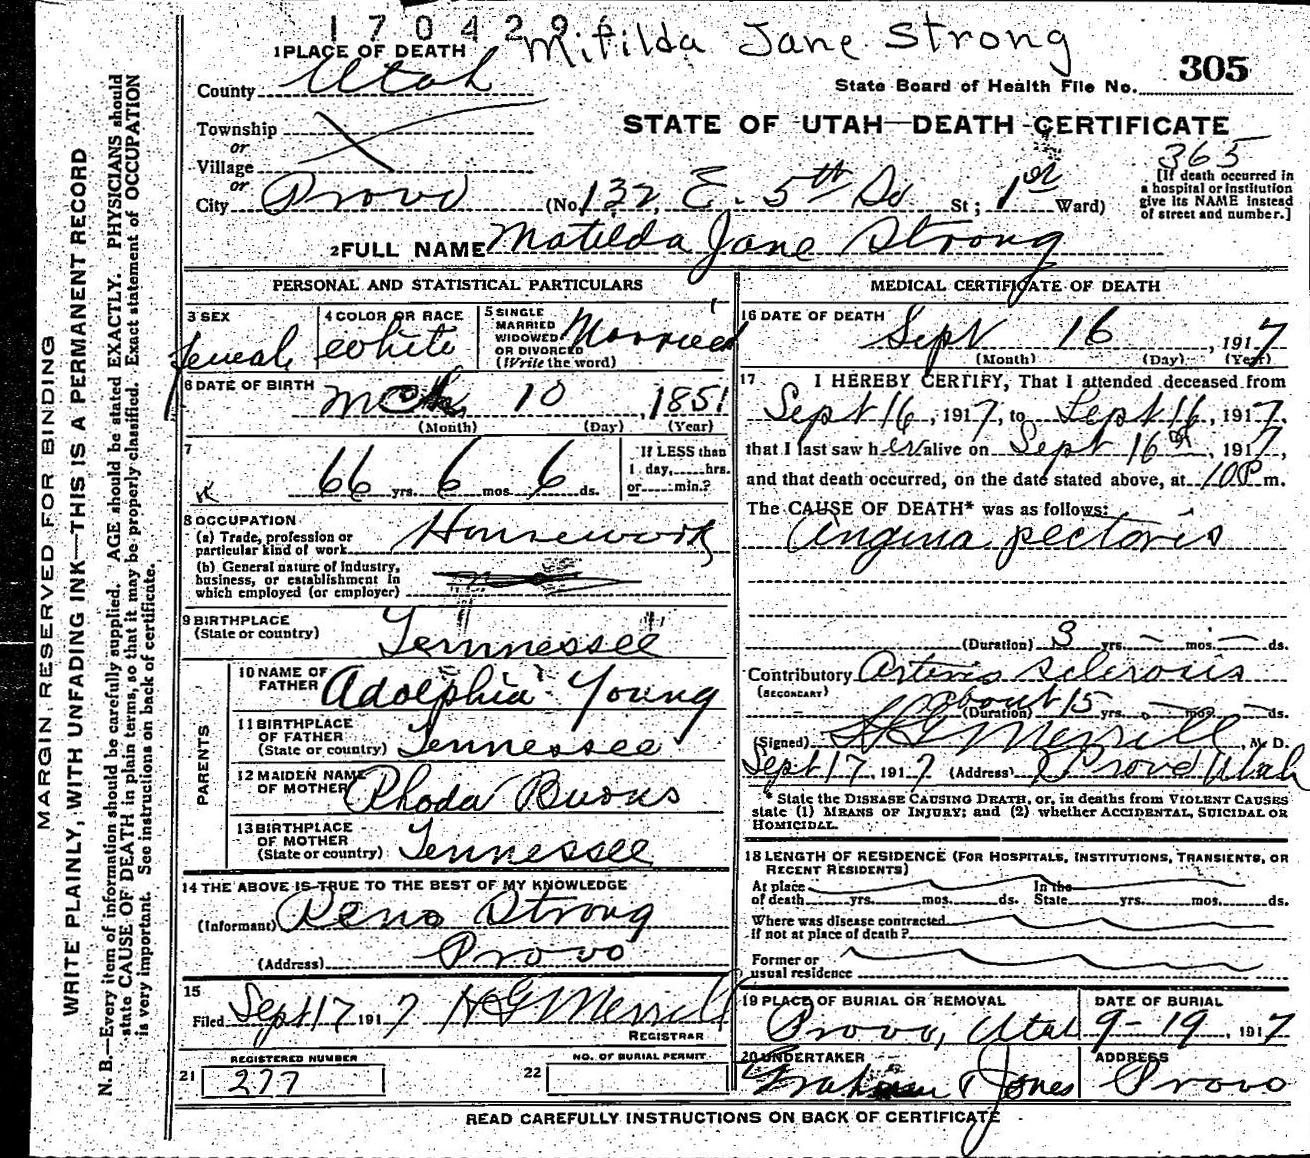 170429
Mitilda Jane Strong
1 PLACE OF DEATH
305
County Utah
State Board of Health File No.
Township
or
Village
or
City Provo (No. 132 E. 5th So St; 1st Ward)
STATE OF UTAH—DEATH CERTIFICATE
365
[If death occurred in
a hospital or institution
give its NAME instead
of street and number.]
2 FULL NAME Matilda Jane Strong
PERSONAL AND STATISTICAL PARTICULARS
3 SEX
female
4 COLOR OR RACE
white
5 SINGLE
MARRIED
WIDOWED
OR DIVORCED
(Write the word)
Married
6 DATE OF BIRTH
10, 1851
(Month) (Day) (Year)
7
66 yrs. 6 mos. 6 ds.
If LESS than
1 day, hrs.
or min.?
8 OCCUPATION
(a) Trade, profession or
particular kind of work Housework
(b) General nature of industry,
business, or establishment in
which employed (or employer)
9 BIRTHPLACE
(State or country) Tennessee
PARENTS
10 NAME OF
FATHER Adolphia Young
11 BIRTHPLACE
OF FATHER
(State or country) Tennessee
12 MAIDEN NAME
OF MOTHER Rhoda
13 BIRTHPLACE
OF MOTHER
(State or country) Tennessee
14 THE ABOVE IS TRUE TO THE BEST OF MY KNOWLEDGE
(Informant) Reno Strong
(Address) Provo
15
Filed Sept 17 1917 H G Merrill
REGISTRAR
REGISTERED NUMBER
21 277
NO. OF BURIAL PERMIT
22
MEDICAL CERTIFICATE OF DEATH
16 DATE OF DEATH
Sept 16, 1917
(Month) (Day) (Year)
17 I HEREBY CERTIFY, That I attended deceased from
Sept 16, 1917, to Sept 16, 1917,
that I last saw her alive on Sept 16th, 1917,
and that death occurred, on the date stated above, at 10 P m.
The CAUSE OF DEATH* was as follows:
Angina pectoris
(Duration) 3 yrs. — mos. — ds.
Contributory Arterio sclerosis
(SECONDARY)
about 15
(Duration) yrs. mos. ds.
(Signed) H G Merrill, M. D.
Sept 17, 1917 (Address) Provo Utah
* State the DISEASE CAUSING DEATH, or, in deaths from VIOLENT CAUSES
state (1) MEANS OF INJURY; and (2) whether ACCIDENTAL, SUICIDAL OR
HOMICIDAL.
18 LENGTH OF RESIDENCE (FOR HOSPITALS, INSTITUTIONS, TRANSIENTS, OR
RECENT RESIDENTS)
At place
of death yrs. mos. ds.
In the
State yrs. mos. ds.
Where was disease contracted
If not at place of death?
Former or
usual residence
19 PLACE OF BURIAL OR REMOVAL
Provo, Utah
DATE OF BURIAL
9-19, 1917
20 UNDERTAKER
Jones
ADDRESS
Provo
READ CAREFULLY INSTRUCTIONS ON BACK OF CERTIFICATE
MARGIN RESERVED FOR BINDING
WRITE PLAINLY, WITH UNFADING INK—THIS IS A PERMANENT RECORD
N. B.—Every item of information should be carefully supplied. AGE should be stated EXACTLY. PHYSICIANS should
state CAUSE OF DEATH in plain terms, so that it may be properly classified. Exact statement of OCCUPATION
is very important. See instructions on back of certificate.